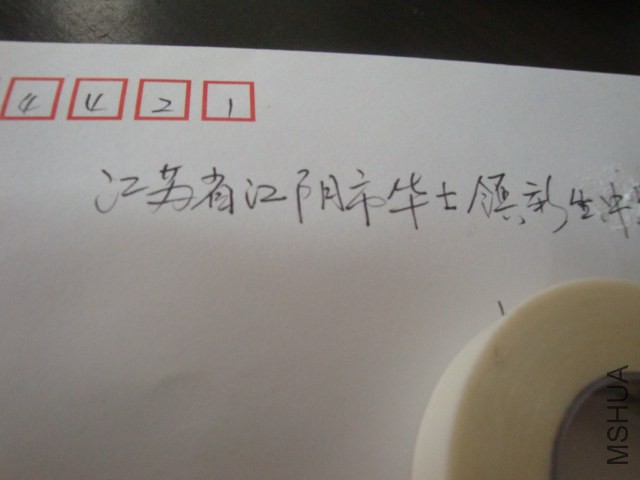 4421
江苏省江阴市华士镇新生中
MSHUA